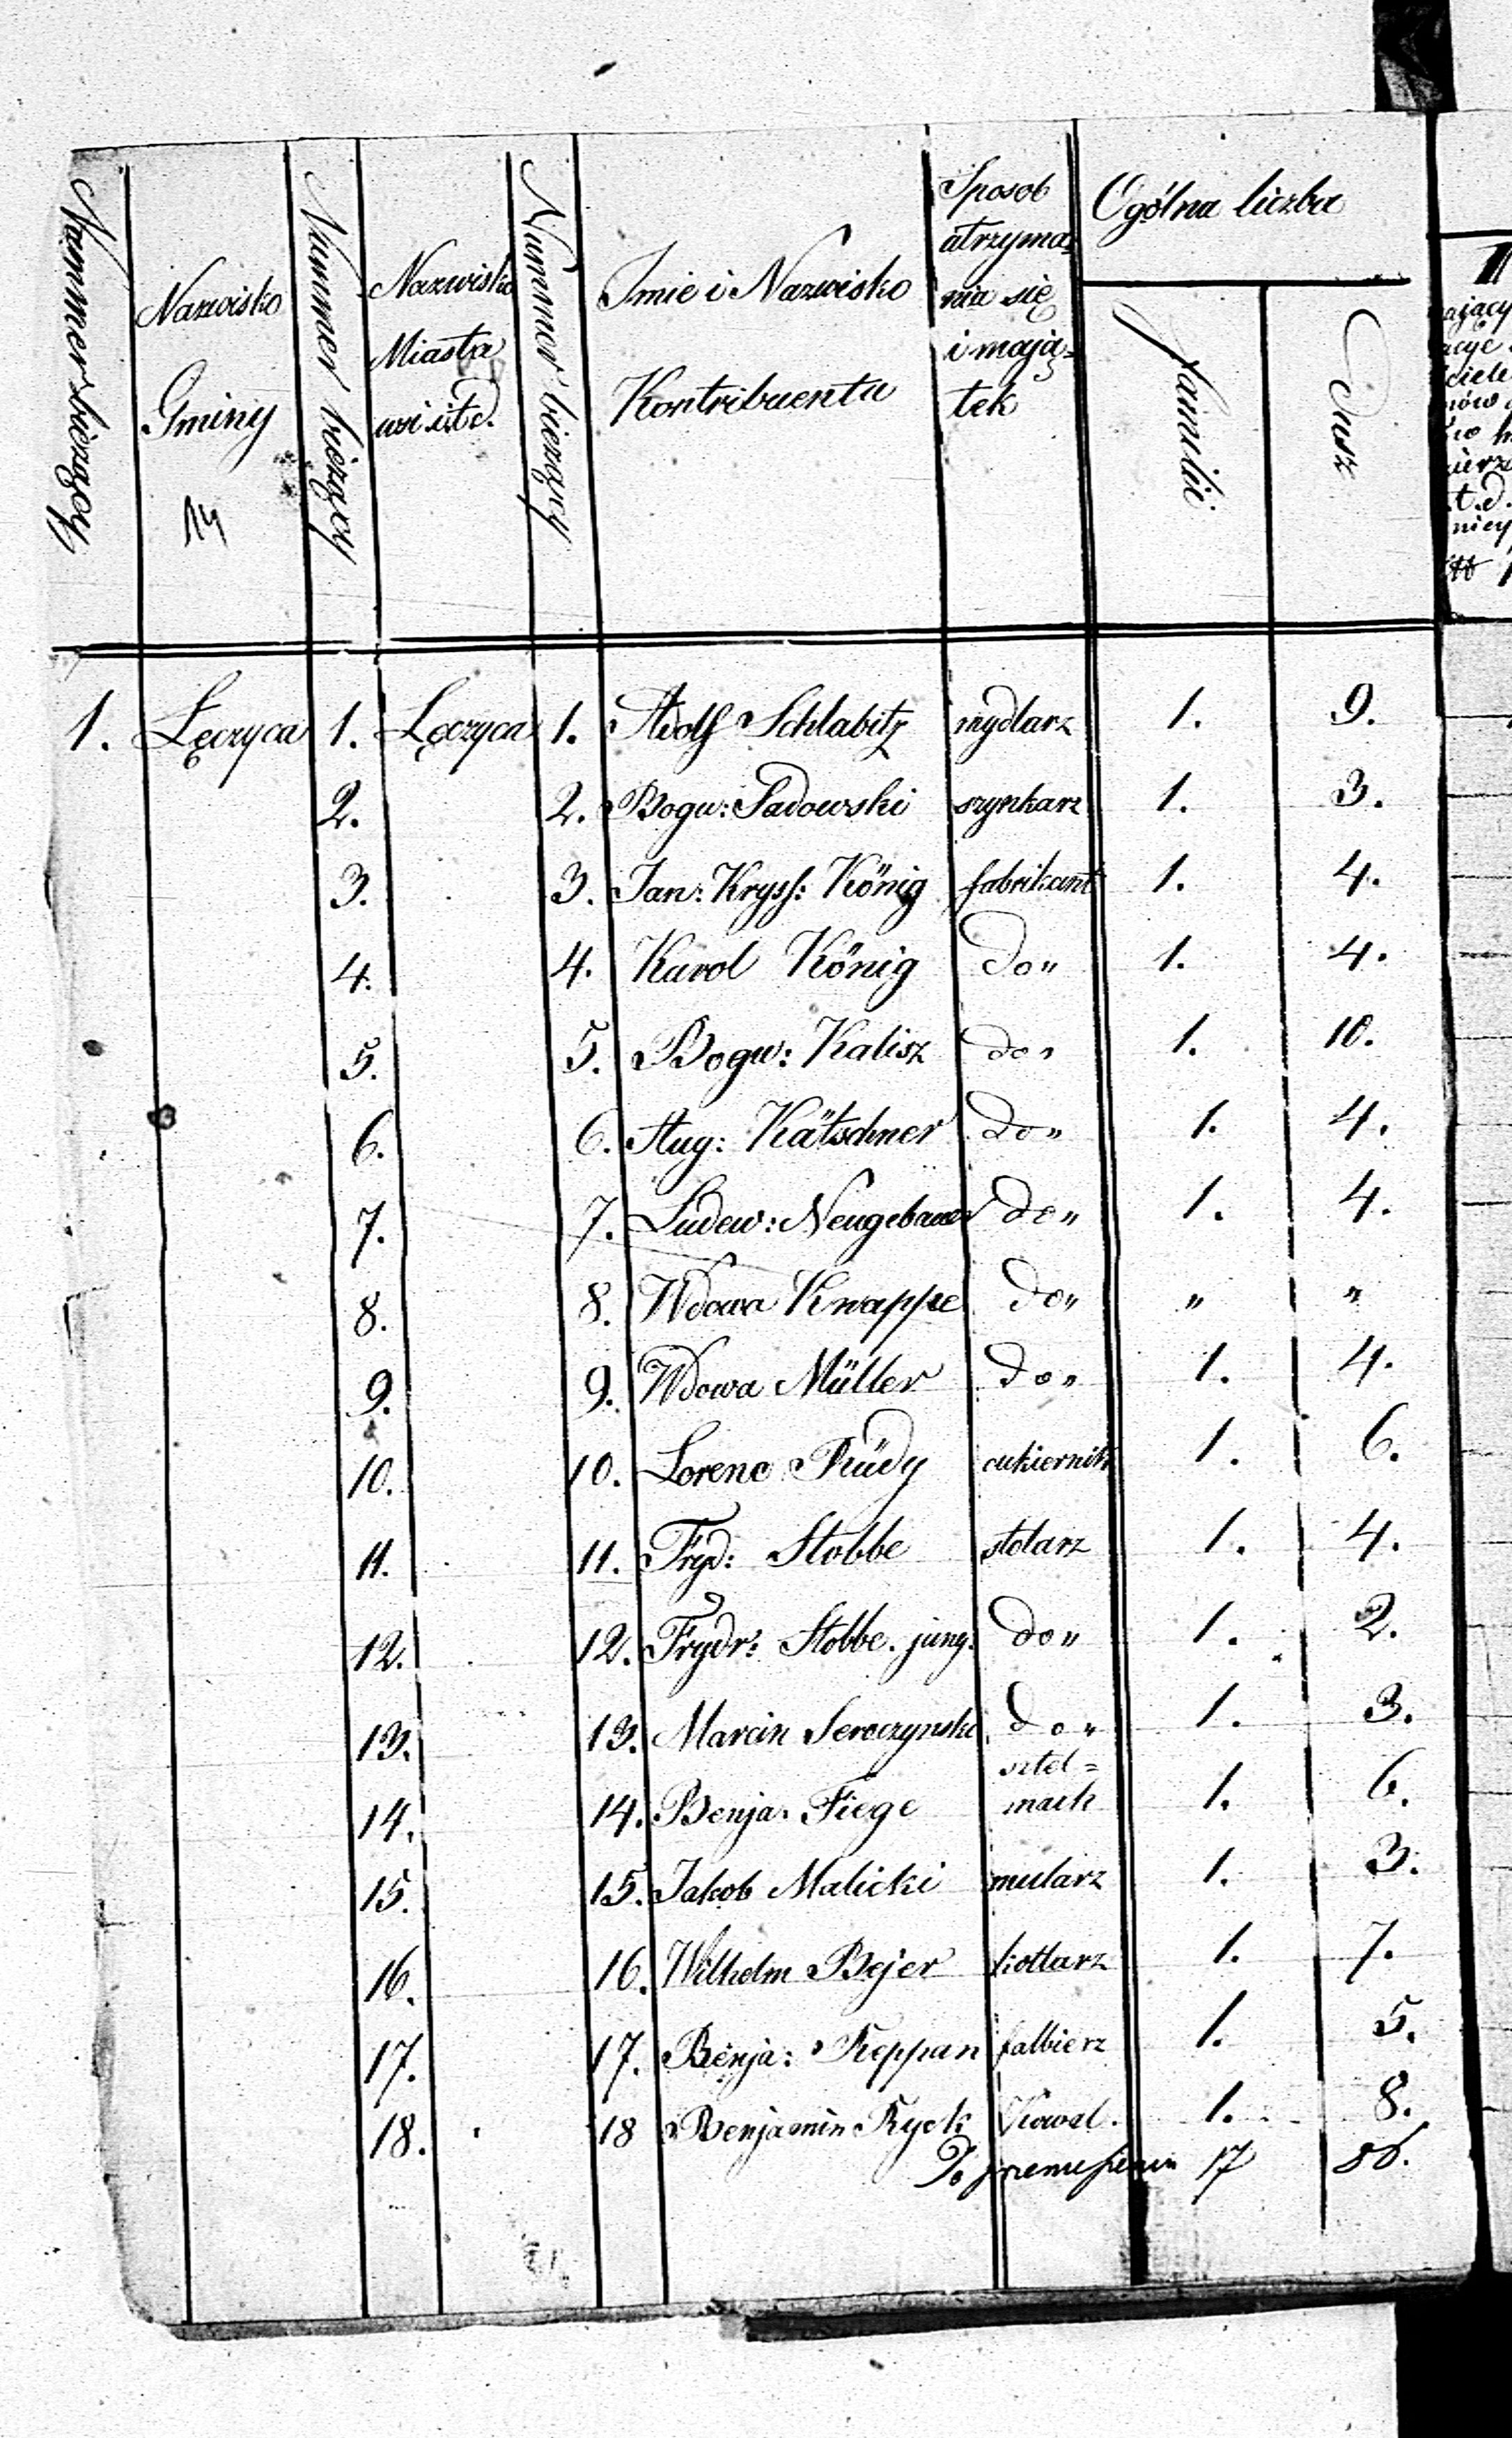 Nummer bieżący
Nazwisko
Gminy
Nummer bieżący
Nazwisko
Miasta
wsi itd.
Nummer bieżący
Imie i Nazwisko
Kontribuenta
Sposob
utrzyma=
nia się
i mają=
tek
Ogólna liczba
familii
Dusz
1. Łęczyca 1. Łęczyca 1. Adolf Schlabitz mydlarz 1. 9.
2. 2. Bogu: Sadowski szynkarz 1. 3.
3. 3. Jan: Krysf: König fabrikant 1. 4.
4. 4. Karol König do" 1. 4.
5. 5. Bogu: Kalisz do" 1. 10.
6. 6. Aug: Kätschner do" 1. 4.
7. 7. Ludew: Neugebauer do" 1. 4.
8. 8. Wdowa Knappe do" " "
9. 9. Wdowa Müller do" 1. 4.
10. 10. Lorenc Rüdy cukiernik 1. 6.
11. 11. Fryd: Stobbe stolarz 1. 4.
12. 12. Frydr: Stobbe. jung. do" 1. 2.
13. 13. Marcin Seroczynski do" 1. 3.
14. 14. Benja: Fiege sztel=
mach 1. 6.
15. 15. Jakob Malicki mularz 1. 3.
16. 16. Wilhelm Bejer kotlarz 1. 7.
17. 17. Benja: Reppan falbierz 1. 5.
18. 18 Benjamin Ryck Kowal. 1. 8.
Do przeniesienia 17 86.